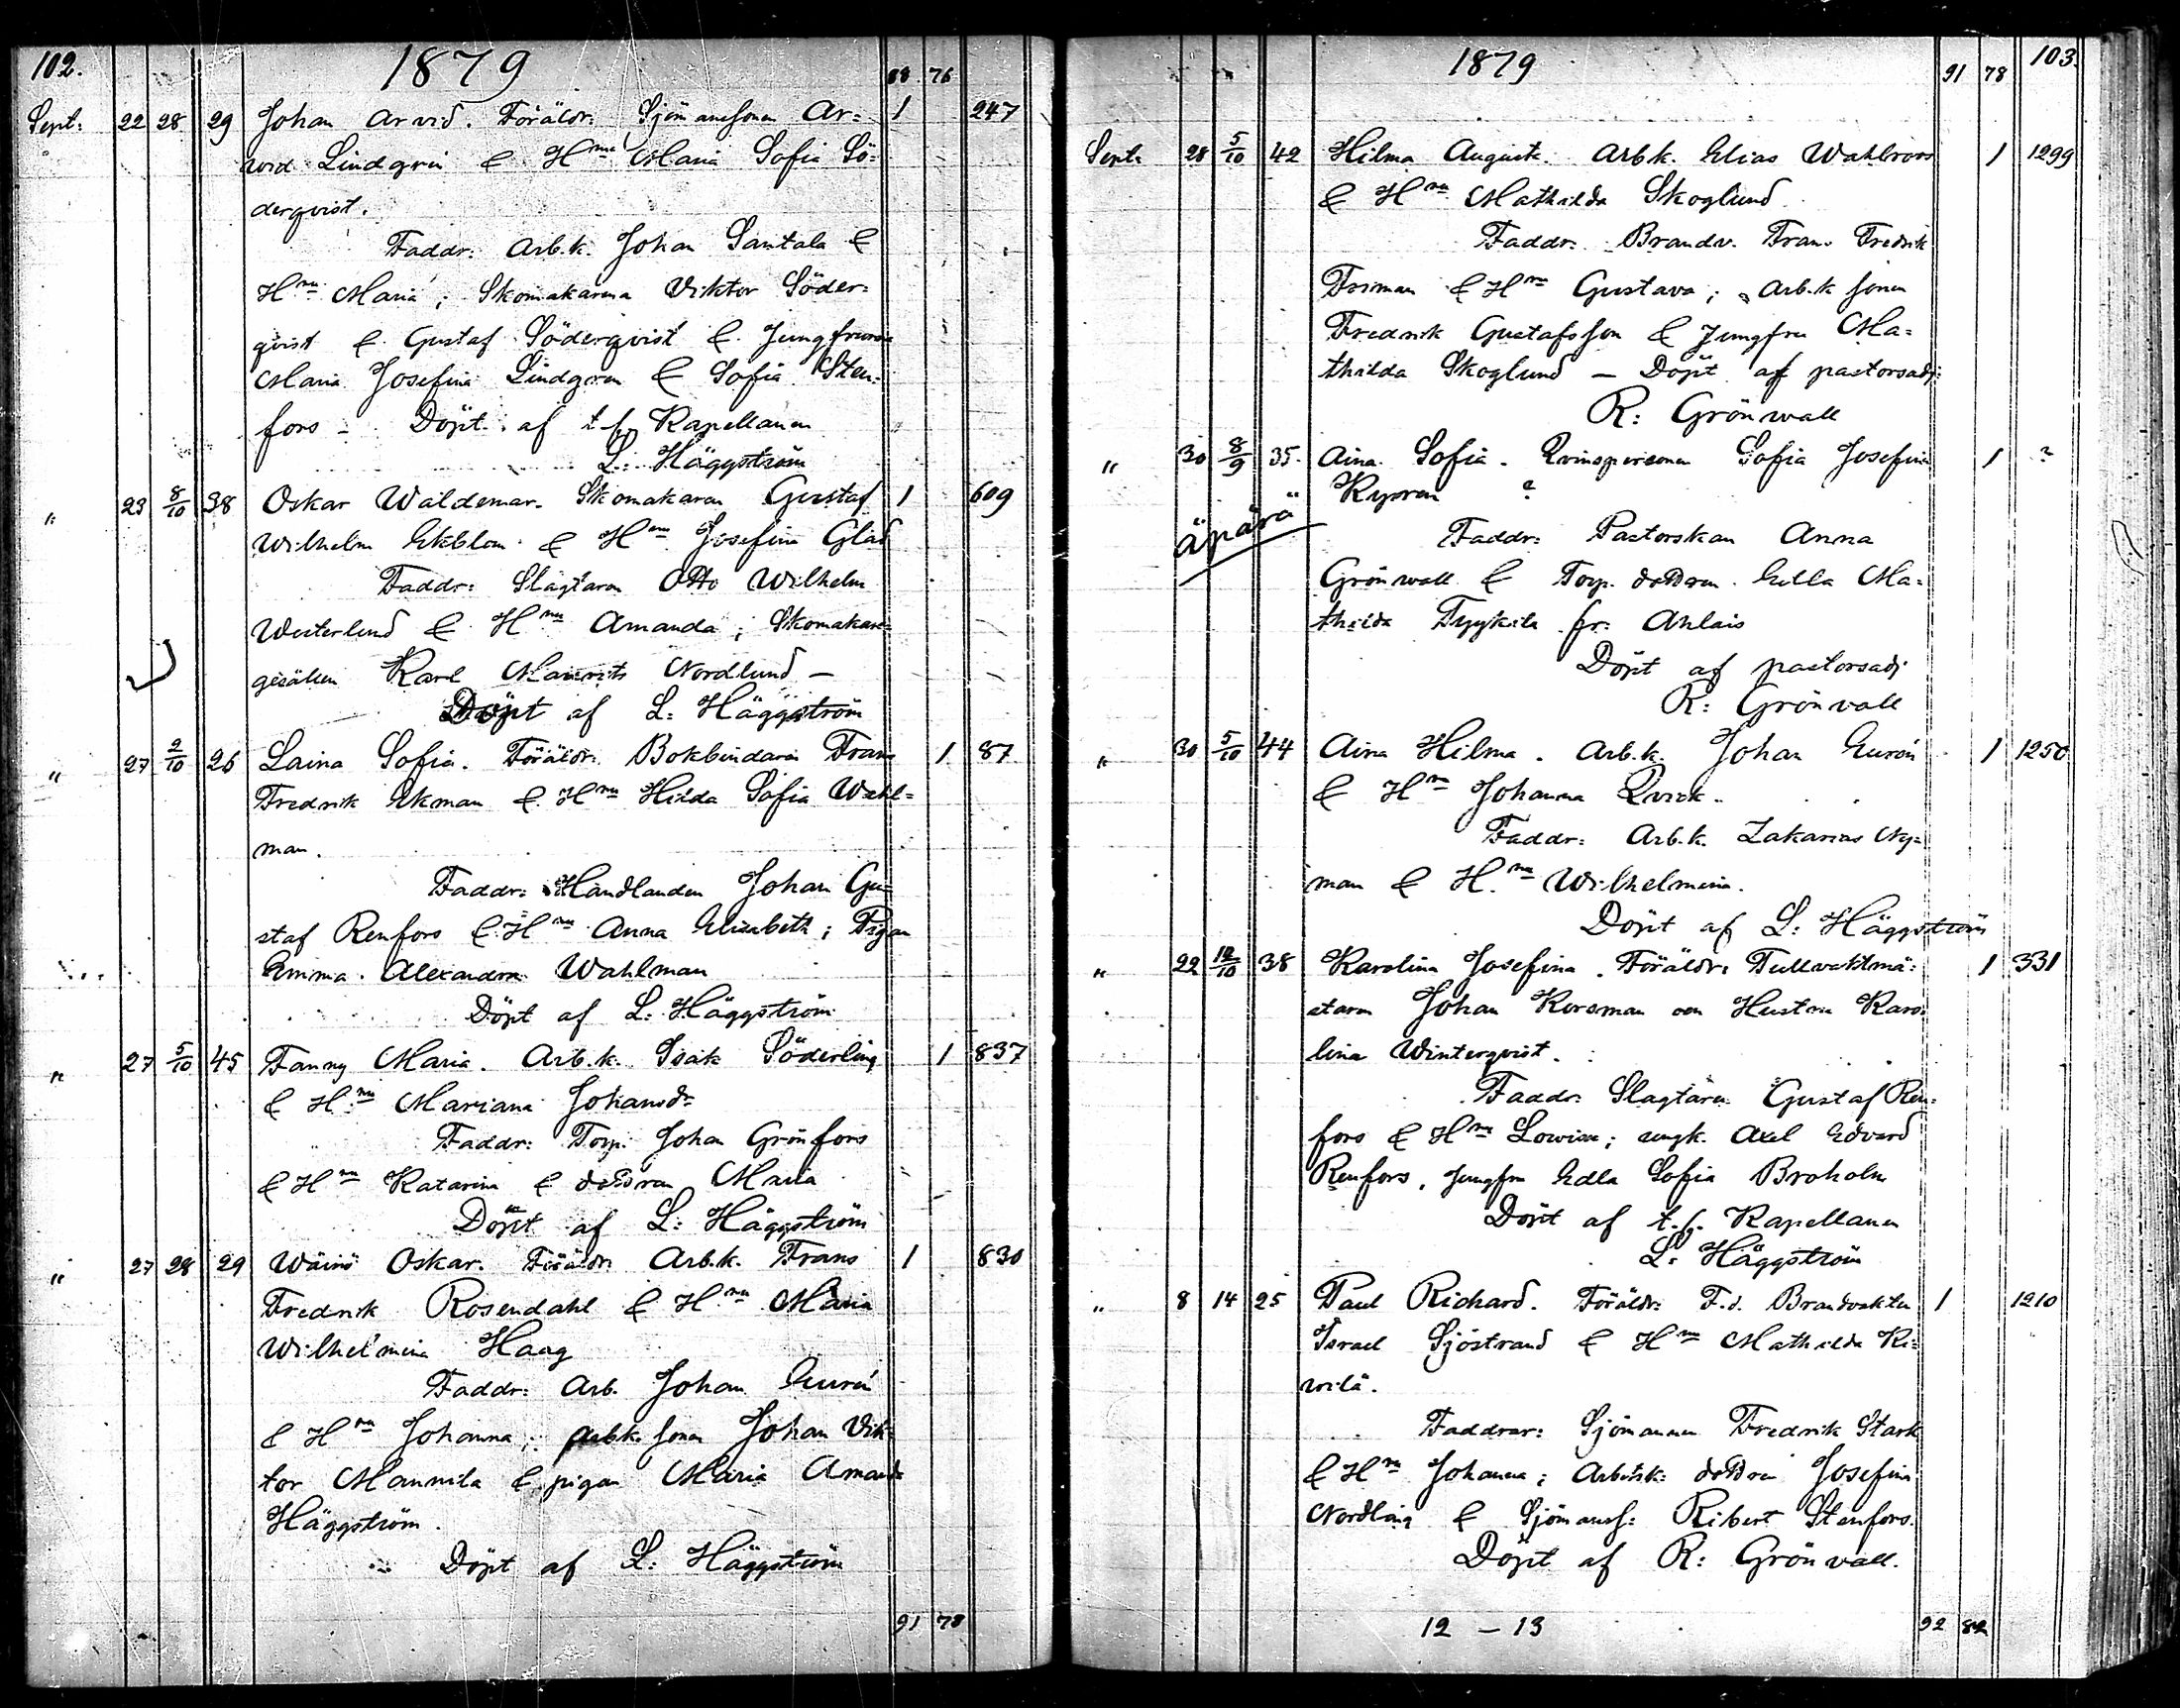 102.
1879
88 76
Sept: 22 28 29 Johan Arvid. Föräldr: Sjömanssonen Ar= 1 247
vid Lindgren & Hru Maria Sofia Sö=
derqvist.
Faddr: Arb.k. Johan Santala &
Hru Maria; Skomakarna Viktor Söder=
qvist & Gustaf Söderqvist & Jungfrurna
Maria Josefina Lindgren & Sofia Sten=
fors - Döpt af t.f. Kapellanen
L: Häggström
" 23 8/10 38 Oskar Waldemar. Skomakaren Gustaf 1 609
Wilhelm Ekblom & Hru Josefina Glad
Faddr: Slagtaren Otto Wilhelm
Westerlund & Hru Amanda; Skomakare=
gesällen Karl Mauritz Nordlund —
Döpt af L: Häggström
" 27 2/10 26 Laina Sofia. Föräldr: Bokbindaren Frans 1 87
Fredrik Ekman & Hru Hilda Sofia Wahl=
man.
Faddr: Handlanden Johan Gu=
staf Renfors & Hru Anna Elisabeth; Pigan
Emma Alexandra Wahlman
Döpt af L: Häggström
" 27 5/10 45 Fanny Maria. Arb.k. Isak Söderling 1 837
& Hru Mariana Johansdr
Faddr: Torp. Johan Grönfors
& Hru Katarina & dottren Maria
Döpt af L: Häggström
" 27 28 29 Wäinö Oskar. Föräldr: Arb.k. Frans 1 830
Fredrik Rosendahl & Hru Maria
Wilhelmina Haag
Faddr: Arb. Johan Eurén
& Hru Johanna; Arbk. sonen Johan Vik=
tor Mannila & pigan Maria Amanda
Häggström.
Döpt af L: Häggström
91 78
1879
91 78 103.
Sept: 28 5/10 42 Hilma Augusta. Arb.k. Elias Wahlroos 1 1299
& Hru Mathilda Skoglund
Faddr: Brandv. Frans Fredrik
Friman & Hru Gustava; Arb.k sonen
Fredrik Gustafsson & Jungfru Ma=
thilda Skoglund — Döpt af pastorsadj:
R: Grönwall
" 30 8/9 35. Aina Sofia. Qvinspersonen Sofia Josefina 1 ?
Kyrön ?
äpärä
Faddr: Pastorskan Anna
Grönwall & Torp. dottren Edla Ma=
thilda Tyykilä fr: Ahlais
Döpt af pastorsadj
R: Grönvall
" 30 5/10 44 Aina Hilma. Arb.k. Johan Eurén 1 1250
& Hru Johanna Qvick.
Faddr: Arb.k. Zakarias Ny=
man & Hru Wilhelmina.
Döpt af L: Häggström
" 22 12/10 38 Karolina Josefina. Föräldr: Tullvaktmä= 1 331
staren Johan Korsman och Hustru Karo=
lina Winterqvist.
Faddr: Slagtaren Gustaf Ren=
fors & Hru Lowisa; ungk. Axel Edvard
Renfors, Jungfru Edla Sofia Broholm
Döpt af t.f. Kapellanen
L: Häggström
" 8 14 25 Paul Richard. Föräldr: F.d. Brandvakten 1 1210
Israel Sjöstrand & Hru Mathilda Ki=
vilä.
Faddrar: Sjömannen Fredrik Stark
& Hru Johanna; Arbetsk: dottren Josefina
Nordling & Sjömanss: Robert Stenfors.
Döpt af R: Grönvall.
12 — 13
92 82